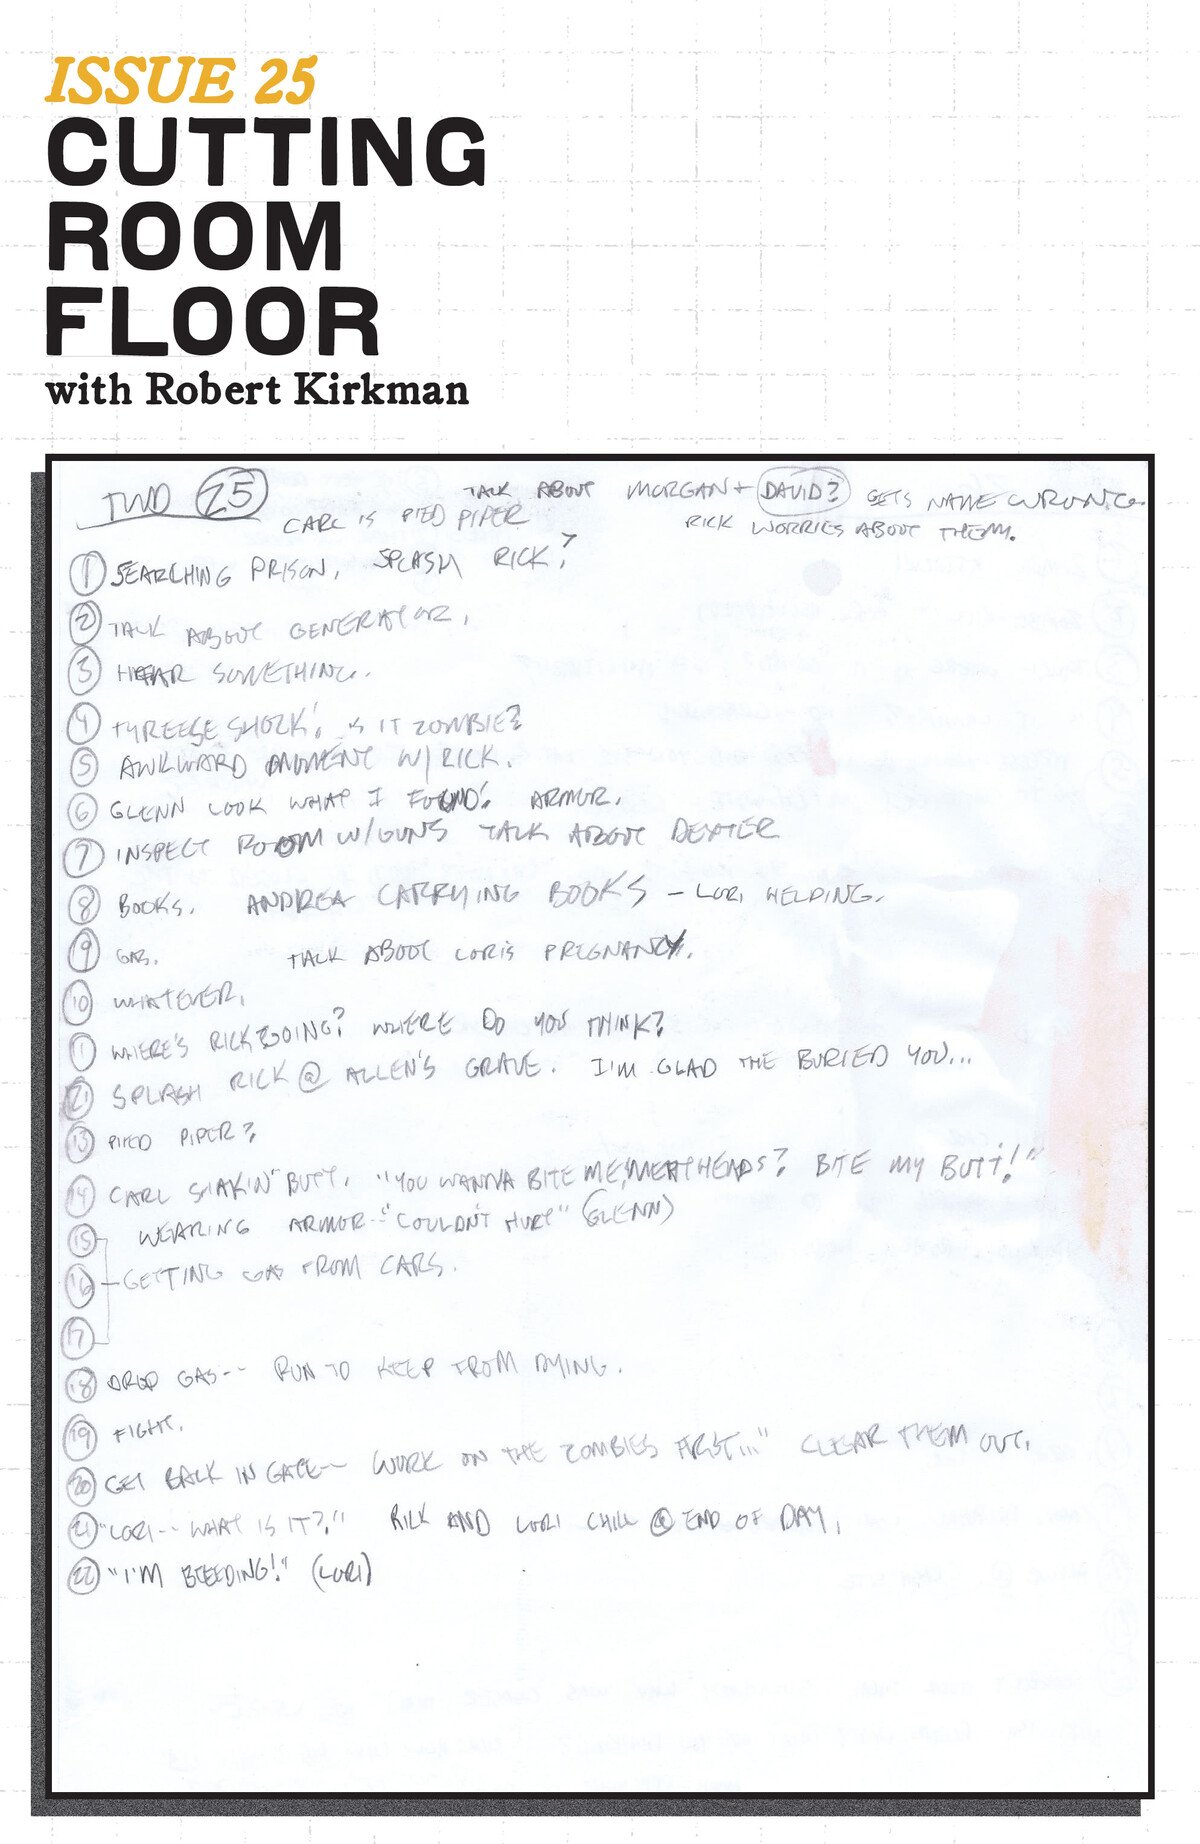 ISSUE 25
CUTTING
ROOM
FLOOR
with Robert Kirkman
TWD 25
TALK ABOUT MORGAN + DAVID? GETS NAME WRONG.
CARL IS PIED PIPER
RICK WORRIES ABOUT THEM.
1 SEARCHING PRISON. SPLASH RICK?
2 TALK ABOUT GENERATOR.
3 HEAR SOMETHING.
4 TYREESE SHOCK! IS IT ZOMBIE?
5 AWKWARD MOMENT W/ RICK.
6 GLENN LOOK WHAT I FOUND! ARMOR.
7 INSPECT ROOM W/GUNS TALK ABOUT DEXTER
8 BOOKS. ANDREA CARRYING BOOKS - LORI HELPING.
9 GAS. TALK ABOUT LORI'S PREGNANCY.
10 WHATEVER.
1 WHERE'S RICK GOING? WHERE DO YOU THINK?
21 SPLASH RICK @ ALLEN'S GRAVE. I'M GLAD THE BURIED YOU...
13 PIED PIPER?
14 CARL SHAKIN' BUTT. "YOU WANNA BITE ME, MEATHEADS? BITE MY BUTT!"
15 WEARING ARMOR -- "COULDN'T HURT" (GLENN)
16 GETTING GAS FROM CARS.
17
18 DROP GAS -- RUN TO KEEP FROM DYING.
19 FIGHT.
20 GET BACK IN GATE -- WORK ON THE ZOMBIES FIRST..." CLEAR THEM OUT.
21 "LORI -- WHAT IS IT?" RICK AND LORI CHILL @ END OF DAY.
22 "I'M BLEEDING!" (LORI)